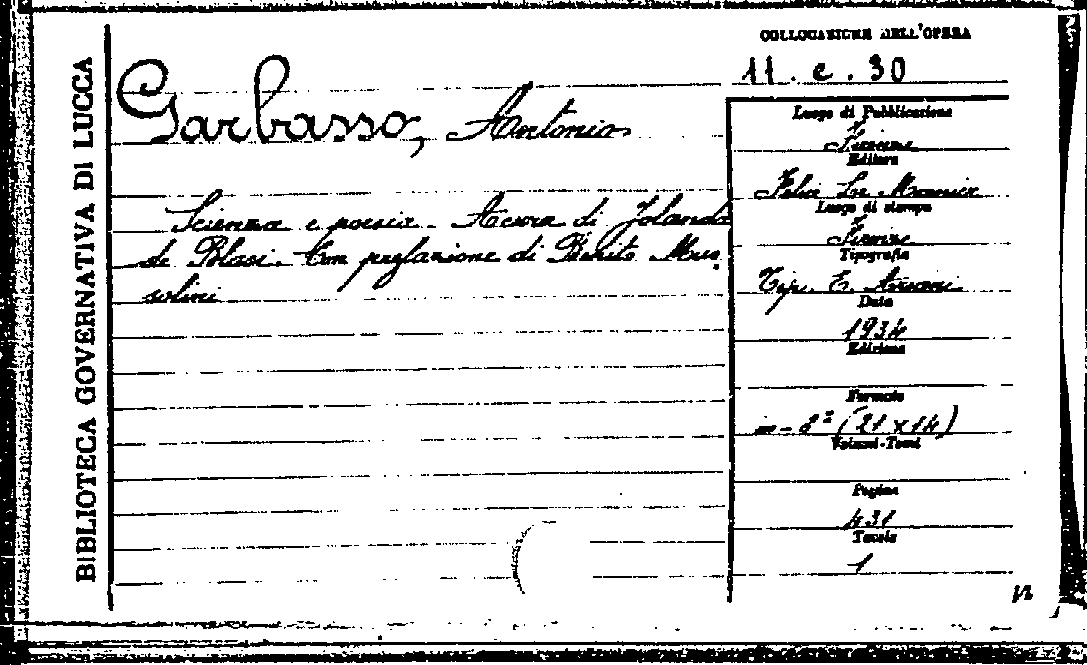 BIBLIOTECA GOVERNATIVA DI LUCCA
COLLOCAZIONE DELL'OPERA
11. c. 30
Garbasso, Antonio
Scienza e poesia. A cura di Jolanda
de Blasi. Con prefazione di Benito Mus
solini
Luogo di Pubblicazione
Firenze
Editore
Felice Le Monnier
Luogo di stampa
Firenze
Tipografia
Tip. E. Ariani
Data
1934
Edizione
Formato
in-8° (21x14)
Volumi-Tomi
Pagine
431
Tavole
1